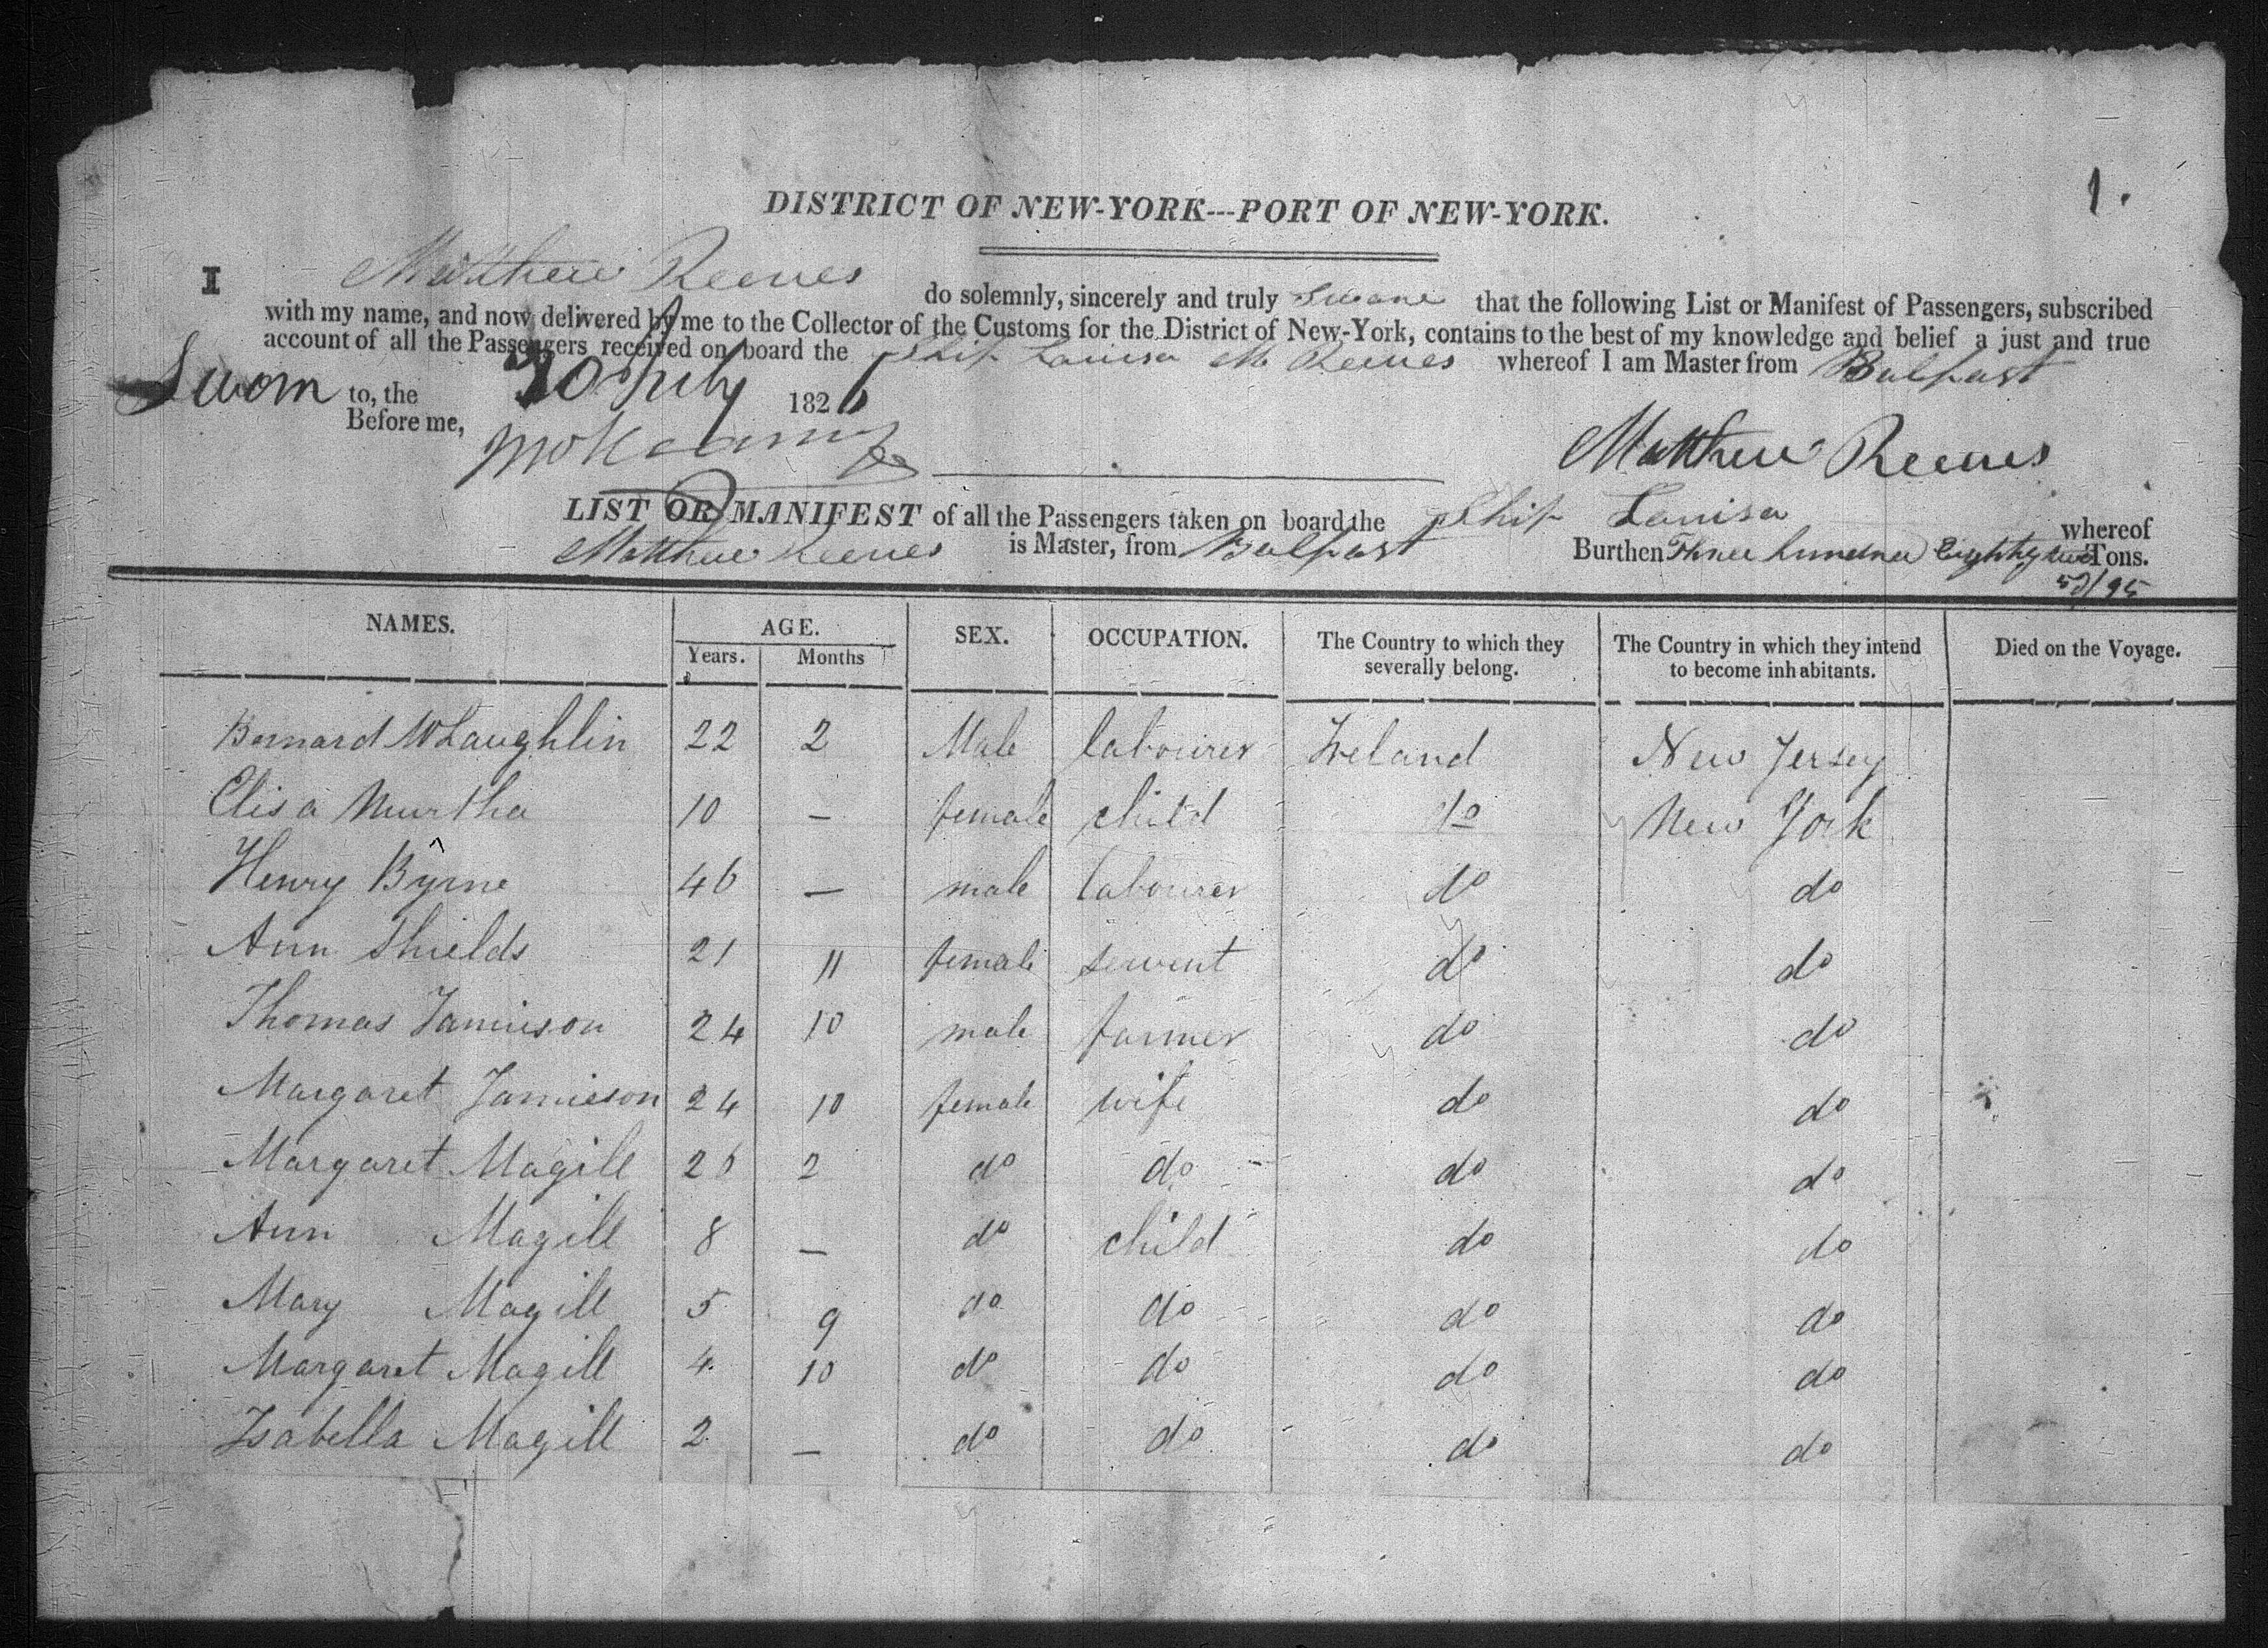 1.
DISTRICT OF NEW-YORK---PORT OF NEW-YORK.
I Matthew Reeves do solemnly, sincerely and truly Sweare that the following List or Manifest of Passengers, subscribed
with my name, and now delivered by me to the Collector of the Customs for the District of New-York, contains to the best of my knowledge and belief a just and true
account of all the Passengers received on board the Ship Louisa M Reeves whereof I am Master from Belfast
Sworn to, the 20 July 1826
Before me,
Matthew Reeves
LIST OR MANIFEST of all the Passengers taken on board the Ship Louisa whereof
Matthew Reeves is Master, from Belfast Burthen Three hundred Eighty two Tons.
/95
NAMES. AGE. SEX. OCCUPATION. The Country to which they severally belong. The Country in which they intend to become inhabitants. Died on the Voyage.
Years. Months
Bernard McLaughlin 22 2 Male labourer Ireland New Jersey
Elisa Murtha 10 — female child do New York
Henry Byrne 46 — male labourer do do
Ann Shields 21 11 female servent do do
Thomas Jamieson 24 10 male farmer do do
Margaret Jamieson 24 10 female wife do do
Margaret Magill 26 2 do do do do
Ann Magill 8 — do child do do
Mary Magill 5 9 do do do do
Margaret Magill 4 10 do do do do
Isabella Magill 2 — do do do do